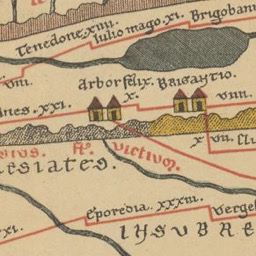 Tenedone.xiiii.
Iulio mago.xi.
Brigobann
viii
Arbor felix. Brigantio.
x.
viiii.
nes.xxi.
x
vii.
Clu
fl. victium
esiates.
Eporedia.xxxiii.
xi.
Vergel
Insubre